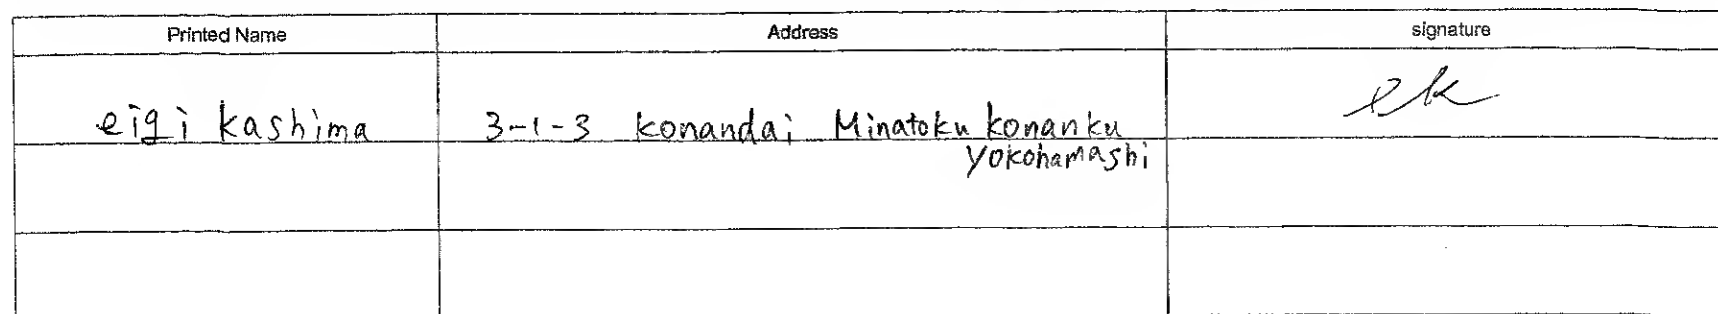 Printed Name Address signature
eigi kashima 3-1-3 konandai Minatoku konanku ek
yokohamashi